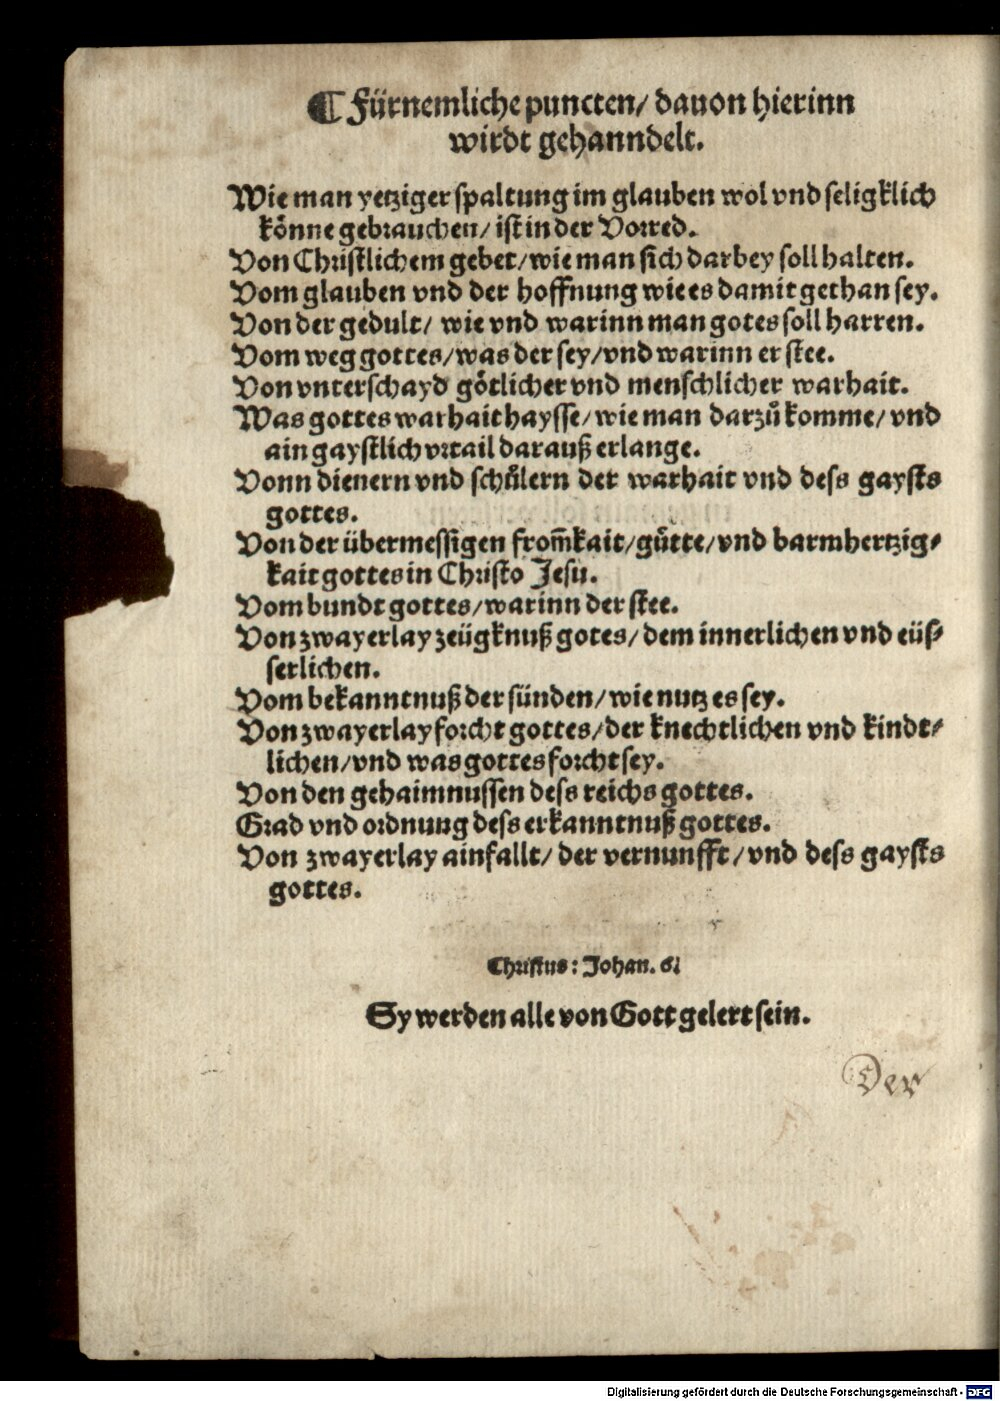 ¶ Fürnemliche puncten/ dauon hierinn
wirdt gehanndelt.
Wie man yetziger spaltung im glauben wol vnd seligklich
koͤnne gebrauchen/ ist in der Vorred.
Von Christlichem gebet/ wie man sich darbey soll halten.
Vom glauben vnd der hoffnung wie es damit gethan sey.
Von der gedult/ wie vnd warinn man gotes soll harren.
Vom weg gottes/ was der sey/ vnd warinn er stee.
Von vnterschayd goͤtlicher vnd menschlicher warhait.
Was gottes warhait haysse/ wie man darzuͦ komme/ vnd
ain gaystlich vrtail darauß erlange.
Vonn dienern vnd schuͤlern der warhait vnd dess gaysts
gottes.
Von der übermessigen from̄kait/ guͤtte/ vnd barmhertzig⸗
kait gottes in Christo Jesu.
Vom bundt gottes/ warinn der stee.
Von zwayerlay zeügknuß gotes/ dem innerlichen vnd eüs⸗
serlichen.
Vom bekanntnuß der sünden/ wie nutz es sey.
Von zwayerlay forcht gottes/ der knechtlichen vnd kindt⸗
lichen/ vnd was gottes forcht sey.
Von den gehaimnussen dess reichs gottes.
Grad vnd ordnung dess erkanntnuß gottes.
Von zwayerlay ainfallt/ der vernunfft/ vnd dess gaysts
gottes.
Christus: Johan. 6.
Sy werden alle von Gott gelert sein.
Der
Digitalisierung gefördert durch die Deutsche Forschungsgemeinschaft - DFG